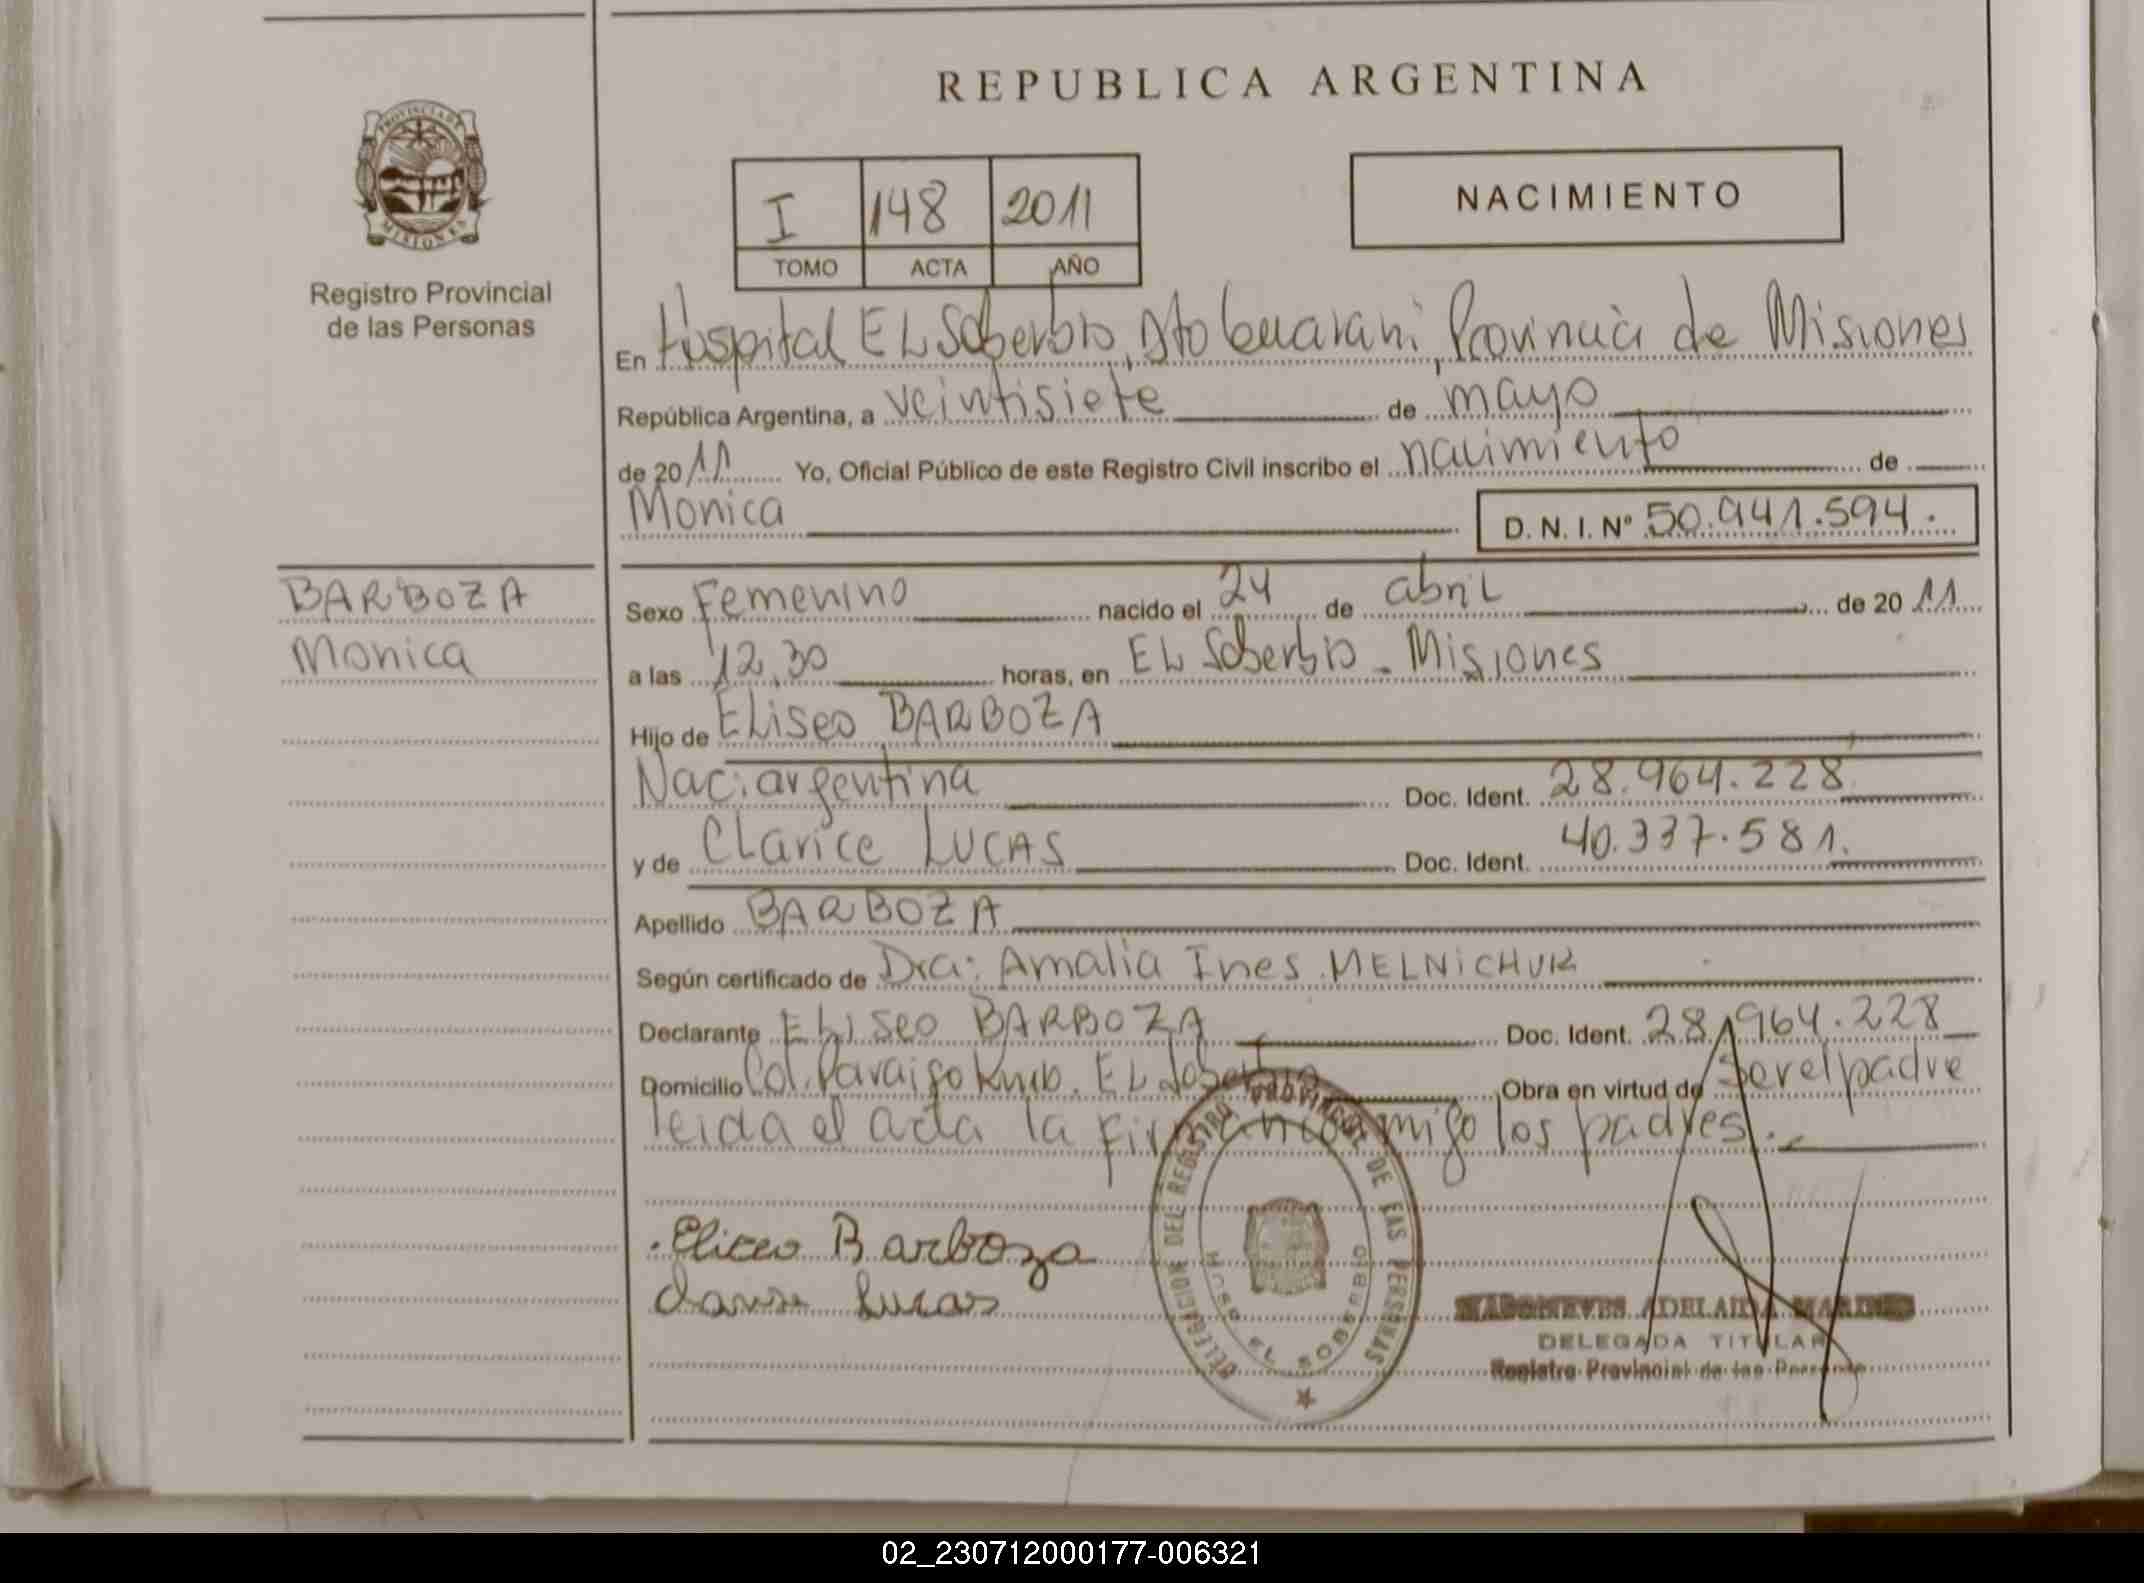 REPUBLICA ARGENTINA
PROVINCIA DE
MISIONES
Registro Provincial
de las Personas
I 148 2011
TOMO ACTA AÑO
NACIMIENTO
En Hospital EL Soberbio, Dto Guarani, Provincia de Misiones
República Argentina, a veintisiete de mayo
de 20 11 Yo, Oficial Público de este Registro Civil inscribo el nacimiento de
Monica D. N. I. Nº 50.941.594.
BARBOZA
Monica
Sexo Femenino nacido el 24 de abril de 20 11
a las 12,30 horas, en EL Soberbio - Misiones
Hijo de Eliseo BARBOZA
Nac: argentina Doc. Ident. 28.964.228
y de Clarice LUCAS Doc. Ident. 40.337.581.
Apellido BARBOZA
Según certificado de Dra: Amalia Ines MELNICHUK
Declarante Eliseo BARBOZA Doc. Ident. 28.964.228
Domicilio Col. Paraiso EL Soberbio Obra en virtud de ser el padre
leida el acta la firman conmigo los padres.-
Eliceo Barboza
Lucas
DELEGACION DEL REGISTRO PROVINCIAL DE LAS PERSONAS
EL SOBERBIO
ADELAIDA
DELEGADA TITULAR
Registro Provincial de las Personas
02_230712000177-006321